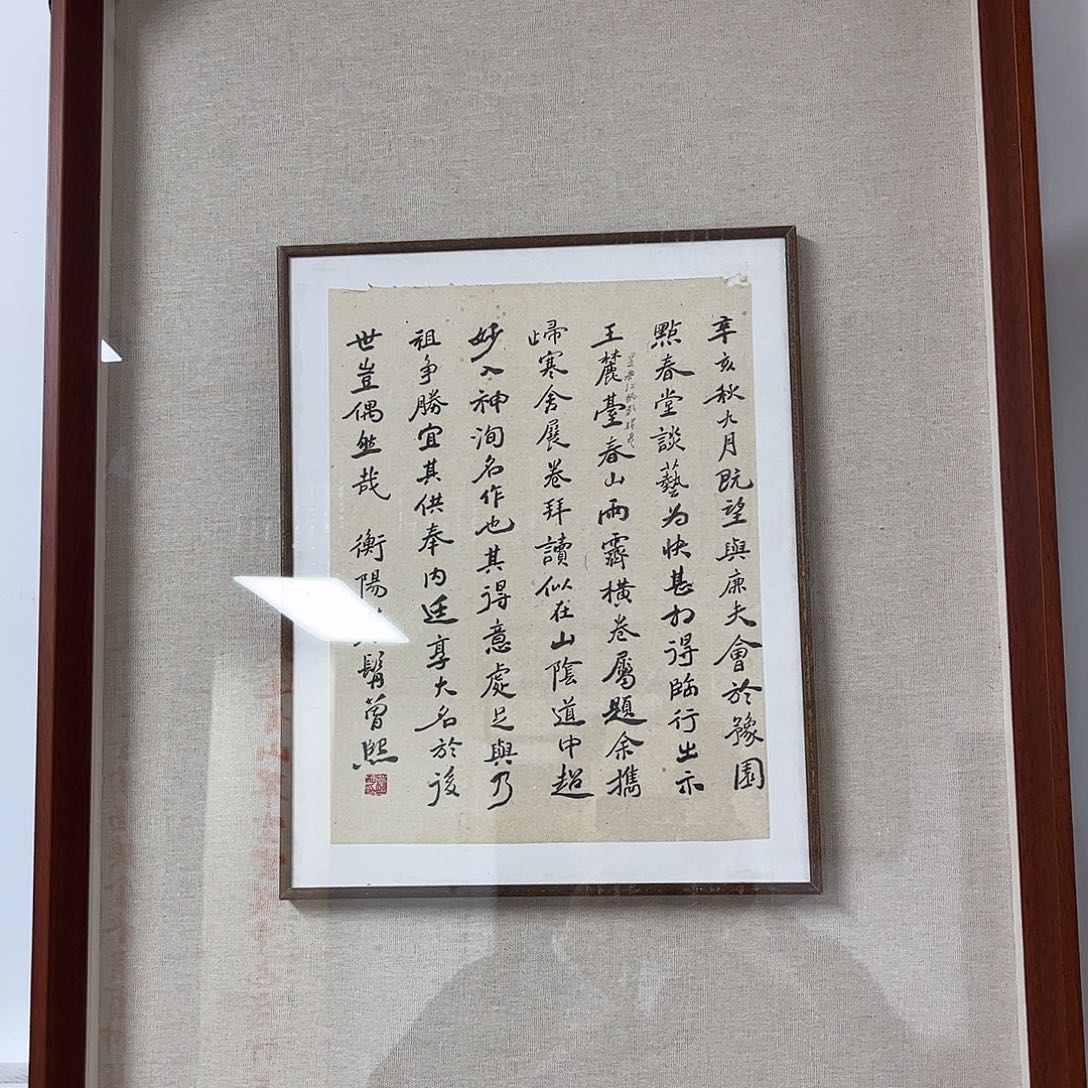 辛亥秋九月既望與廉夫會於豫園
點春堂談藝為快甚於得臨行出示
王麓臺春山雨霽橫卷屬題余攜
歸寒舍展卷拜讀似在山陰道中超
妙入神洵名作也其得意處足與乃
祖爭勝宜其供奉內廷享大名於後
世豈偶然哉
衡陽 髯曾熙